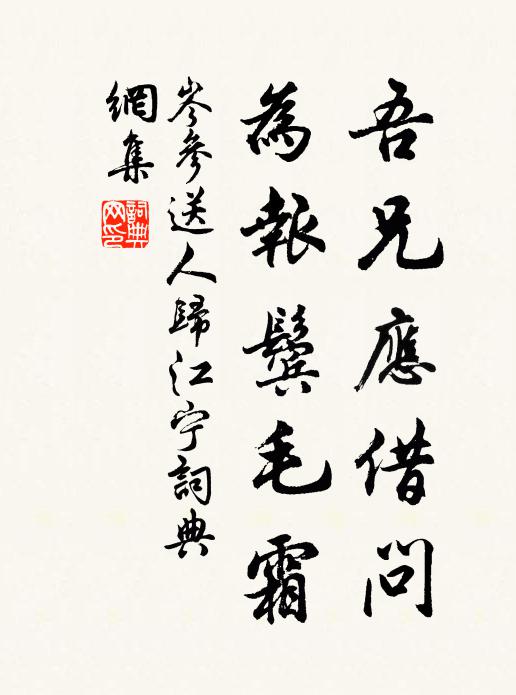 吾兄應借問
為報鬢毛霜
岑參送人歸江宁詞典
網集
詞典
网印